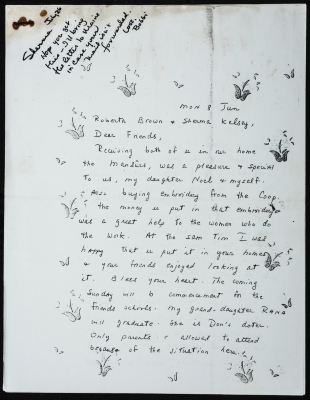 Sherma,
Hope you get
this - I'll bring
the letter to
in case your
mail isn't
forwarded.
Love
Bobbi
MON 8 Jun
Roberta Brown & Sherma Kelsey,
Dear Friends,
Receiving both of u in our home
the Mansurs, was a pleasure & special
to us, my daughter Noel & myself.
Also buying embroidery from the Coop.
the money u put in that embroidery
was a great help to the women who do
the work. At the sam Tim I was
happy that u put it in your homes
& your friends enjoyed looking at
it. Bless your heart. The coming
Sunday will b commencement for the
Friends Schools. My grand-daughter Rana
will graduate. She is Don's doter.
Only parents r allowed to attend
because of the situation here.